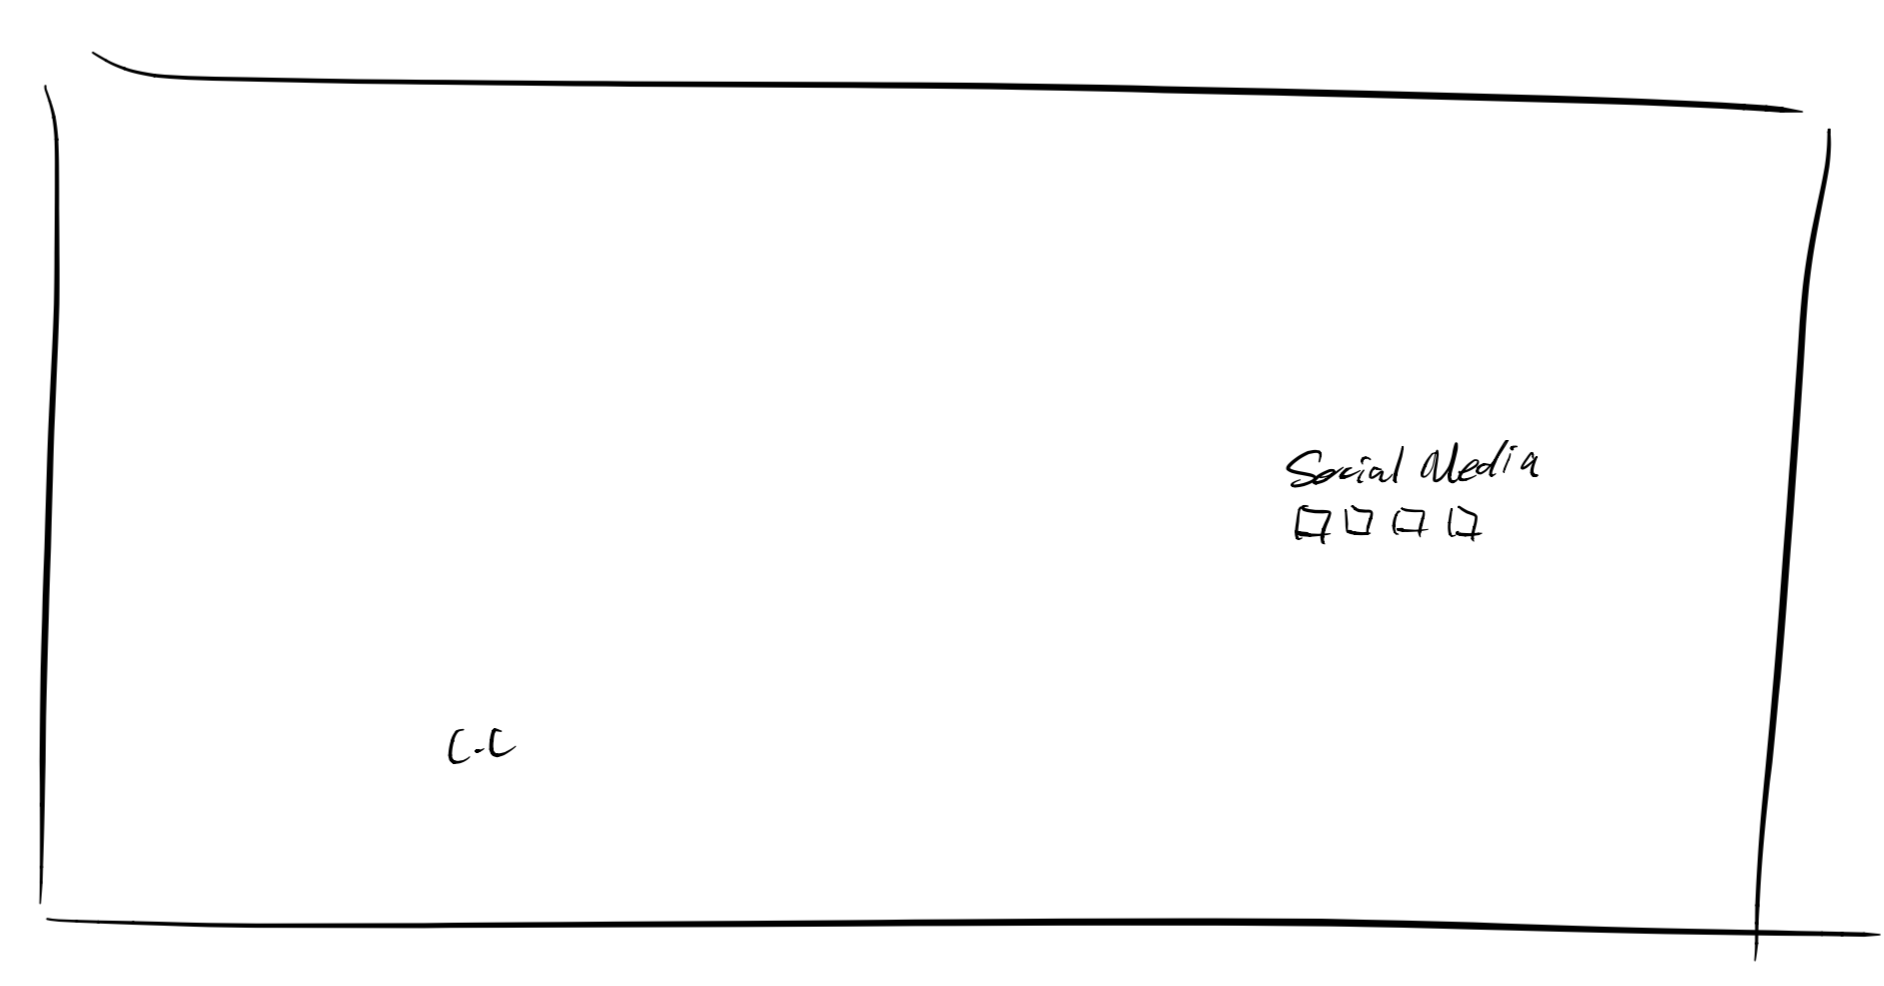 Social Media
C-C